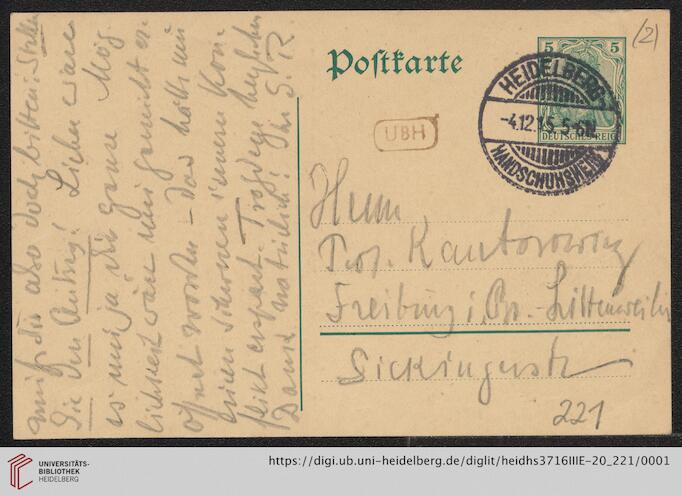 (2)
Postkarte
5 5
DEUTSCHES REICH
HEIDELBERG
-4.12.15. 5-6N
HANDSCHUHSHEIM
UBH
Herrn
Prof. Kantorowicz
Freiburg i. Br.-Littenweiler
Sickingerstr
221
muß Sie also doch bitten: Stellen
Sie den Antrag! Lieber wäre
es mir ja, die ganze Mög-
lichkeit wäre mir garnicht er-
öffnet worden – das hätte mir
einen schweren inneren Kon-
flikt erspart. Trotzdem herzlichen
Dank natürlich! Ihr G. R.
UNIVERSITÄTS-
BIBLIOTHEK
HEIDELBERG
https://digi.ub.uni-heidelberg.de/diglit/heidhs3716IIIE-20_221/0001